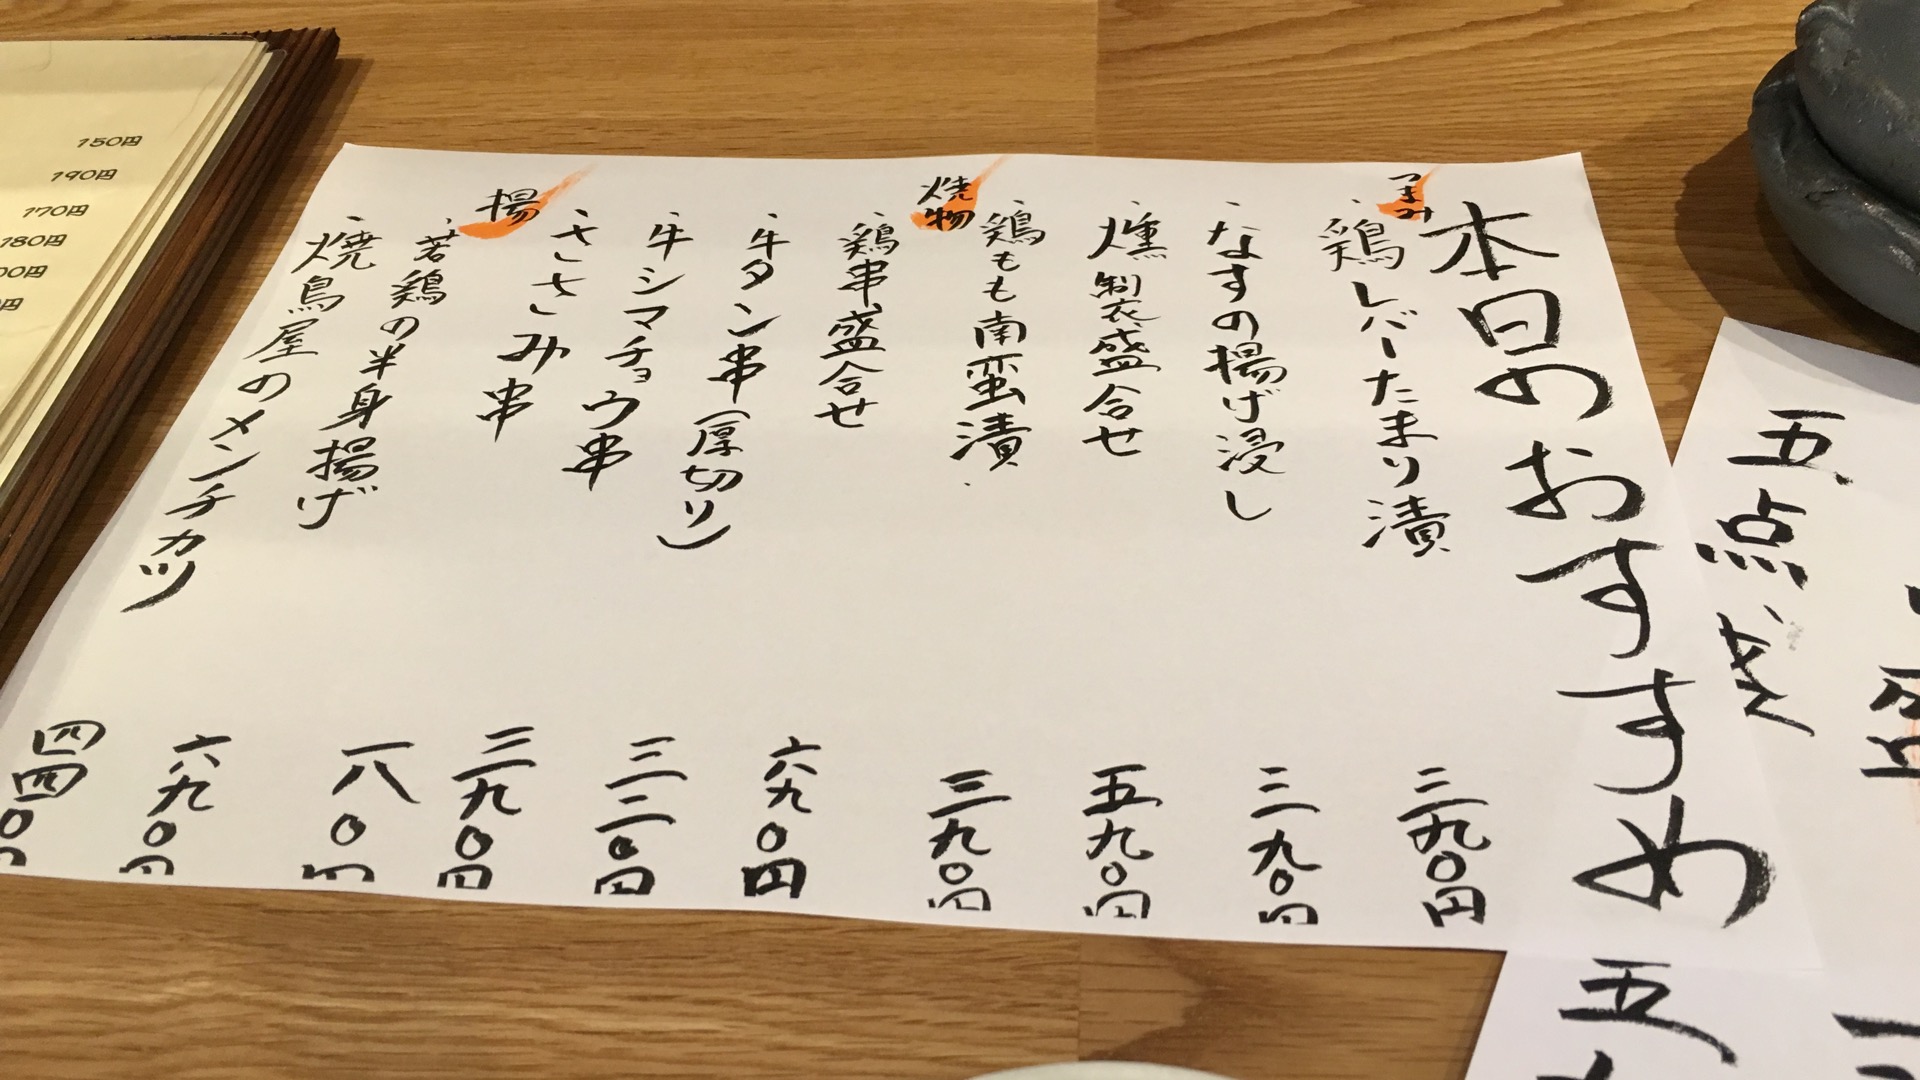 本日のおすすめ
つまみ
、鶏レバーたまり漬 三九〇円
、なすの揚げ浸し 三九〇円
、燻製盛合せ 五九〇円
、鶏もも南蛮漬 三九〇円
焼物
、鶏串盛合せ 六九〇円
、牛タン串(厚切り) 三二〇円
、牛シマチョウ串 三九〇円
、ささみ串 一八〇円
揚
、若鶏の半身揚げ 六九〇円
、焼鳥屋のメンチカツ 四四〇円
五点盛
五
150円
190円
170円
180円